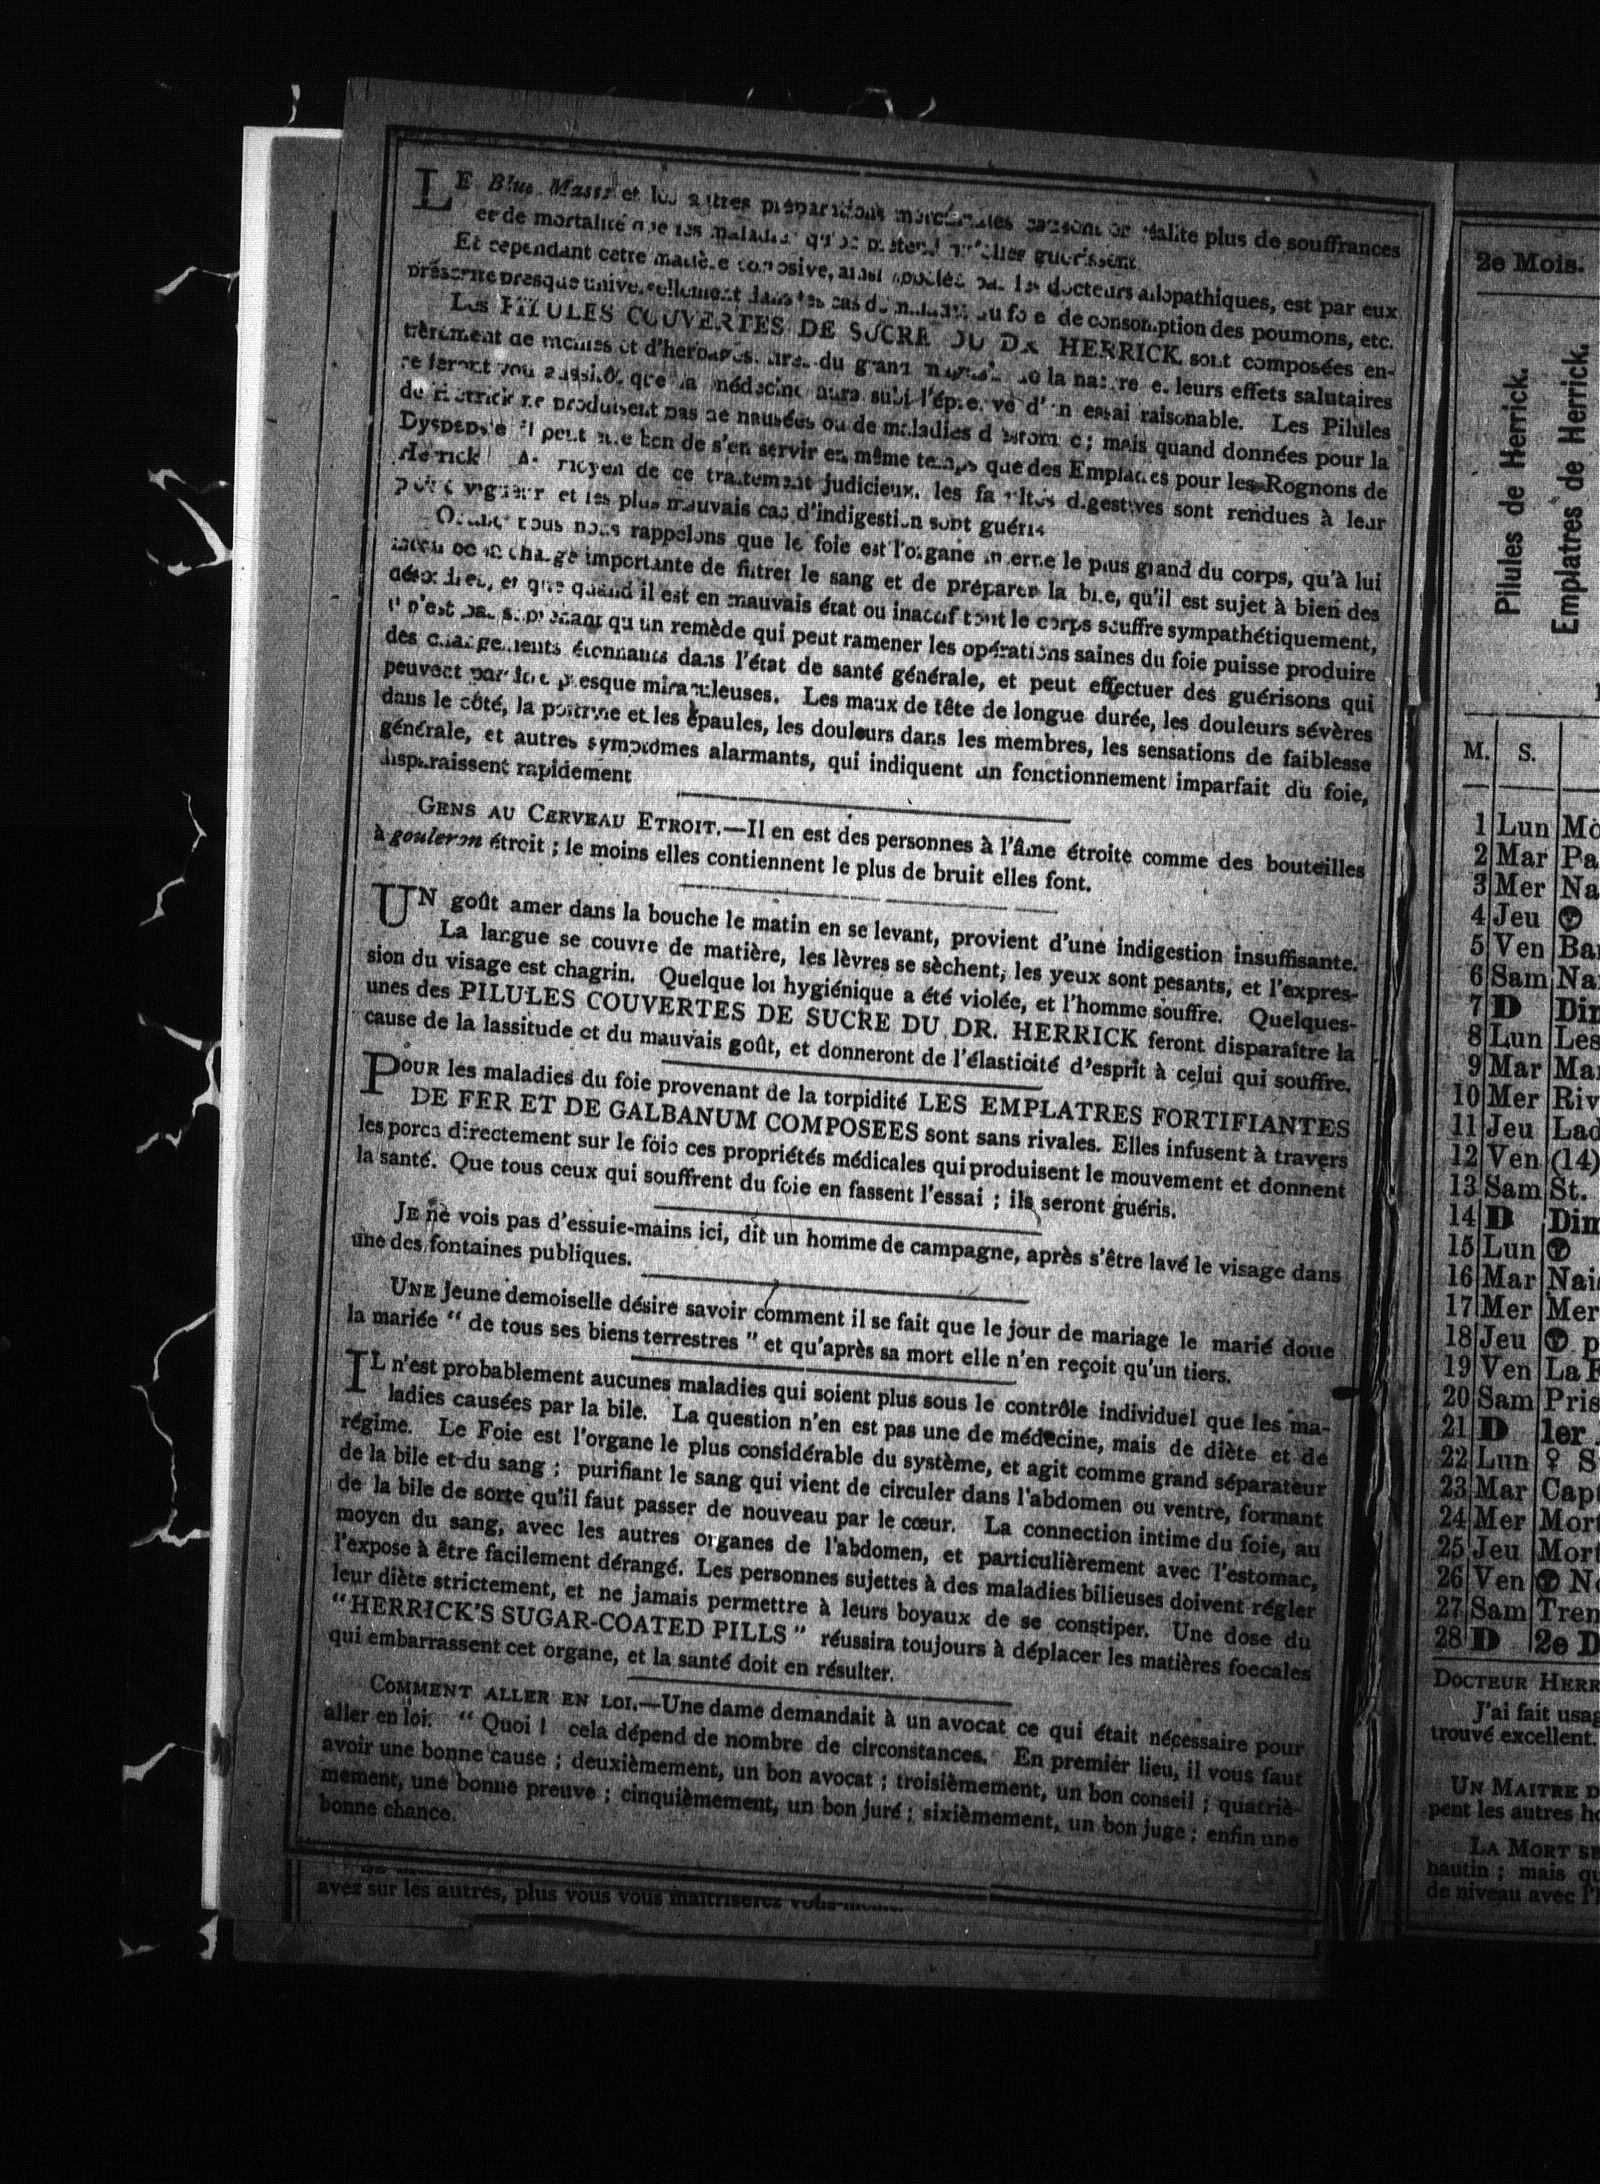 LE Blue Mass et les autres préparations mercurielles causent en réalité plus de souffrances
et de mortalité que les maladies qu'on prétend qu'elles guérissent.
Et cependant cette matière corrosive, ainsi appelée par les docteurs allopathiques, est par eux
préscrite presque universellement dans les cas de maladie du foie de consomption des poumons, etc.
Les PILULES COUVERTES DE SUCRE DU DR HERRICK sont composées en-
tièrement de racines et d'herbages, du grand de la nature et leurs effets salutaires
se feront voir aussitôt que la médecine aura subi l'épreuve d'un essai raisonable. Les Pilules
de Herrick ne produisent pas de nausées ou de maladies d'estomac; mais quand données pour la
Dyspepsie il peut être bon de s'en servir en même temps que des Emplatres pour les Rognons de
Herrick! Au moyen de ce traitement judicieux, les facultés digestives sont rendues à leur
vigueur et les plus mauvais cas d'indigestion sont guéris
tous nous rappelons que le foie est l'organe interne le plus grand du corps, qu'à lui
charge importante de filtrer le sang et de préparer la bile, qu'il est sujet à bien des
désordres, et que quand il est en mauvais état ou inactif tout le corps souffre sympathétiquement,
il n'est pas surprenant qu'un remède qui peut ramener les opérations saines du foie puisse produire
des changements étonnants dans l'état de santé générale, et peut effectuer des guérisons qui
peuvent paraître presque miraculeuses. Les maux de tête de longue durée, les douleurs sévères
dans le côté, la poitrine et les épaules, les douleurs dans les membres, les sensations de faiblesse
générale, et autres symptômes alarmants, qui indiquent un fonctionnement imparfait du foie,
disparaissent rapidement
GENS AU CERVEAU ETROIT.—Il en est des personnes à l'âme étroite comme des bouteilles
à gouleron étroit ; le moins elles contiennent le plus de bruit elles font.
UN goût amer dans la bouche le matin en se levant, provient d'une indigestion insuffisante.
La langue se couvre de matière, les lèvres se sèchent, les yeux sont pesants, et l'expres-
sion du visage est chagrin. Quelque loi hygiénique a été violée, et l'homme souffre. Quelques-
unes des PILULES COUVERTES DE SUCRE DU DR. HERRICK feront disparaître la
cause de la lassitude et du mauvais goût, et donneront de l'élasticité d'esprit à celui qui souffre.
POUR les maladies du foie provenant de la torpidité LES EMPLATRES FORTIFIANTES
DE FER ET DE GALBANUM COMPOSEES sont sans rivales. Elles infusent à travers
les pores directement sur le foie ces propriétés médicales qui produisent le mouvement et donnent
la santé. Que tous ceux qui souffrent du foie en fassent l'essai ; ils seront guéris.
JE nè vois pas d'essuie-mains ici, dit un homme de campagne, après s'être lavé le visage dans
une des fontaines publiques.
UNE Jeune demoiselle désire savoir comment il se fait que le jour de mariage le marié doue
la mariée “ de tous ses biens terrestres ” et qu'après sa mort elle n'en reçoit qu'un tiers.
IL n'est probablement aucunes maladies qui soient plus sous le contrôle individuel que les ma-
ladies causées par la bile. La question n'en est pas une de médecine, mais de diète et de
régime. Le Foie est l'organe le plus considérable du système, et agit comme grand séparateur
de la bile et du sang ; purifiant le sang qui vient de circuler dans l'abdomen ou ventre, formant
de la bile de sorte qu'il faut passer de nouveau par le cœur. La connection intime du foie, au
moyen du sang, avec les autres organes de l'abdomen, et particulièrement avec l'estomac,
l'expose à être facilement dérangé. Les personnes sujettes à des maladies bilieuses doivent régler
leur diète strictement, et ne jamais permettre à leurs boyaux de se constiper. Une dose du
“HERRICK'S SUGAR-COATED PILLS” réussira toujours à déplacer les matières foecales
qui embarrassent cet organe, et la santé doit en résulter.
COMMENT ALLER EN LOI.—Une dame demandait à un avocat ce qui était nécessaire pour
aller en loi. “ Quoi ! cela dépend de nombre de circonstances. En premier lieu, il vous faut
avoir une bonne cause ; deuxièmement, un bon avocat ; troisièmement, un bon conseil ; quatriè-
mement, une bonne preuve ; cinquièmement, un bon juré ; sixièmement, un bon juge ; enfin une
bonne chance.
avez sur les autres, plus vous vous maîtriserez vous-même.
2e Mois.
Pilules de Herrick.
Emplatres de Herrick.
M. S.
1 Lun Mo
2 Mar Pa
3 Mer Na
4 Jeu
5 Ven Ba
6 Sam Na
7 D Din
8 Lun Les
9 Mar Ma
10 Mer Riv
11 Jeu Lad
12 Ven (14)
13 Sam St.
14 D Dim
15 Lun
16 Mar Nai
17 Mer Mer
18 Jeu p
19 Ven La F
20 Sam Pris
21 D 1er
22 Lun ♀ S
23 Mar Cap
24 Mer Mort
25 Jeu Mort
26 Ven No
27 Sam Tren
28 D 2e D
DOCTEUR HERR
J'ai fait usag
trouvé excellent.
UN MAITRE D
pent les autres ho
LA MORT SE
hautin ; mais qu
de niveau avec l'